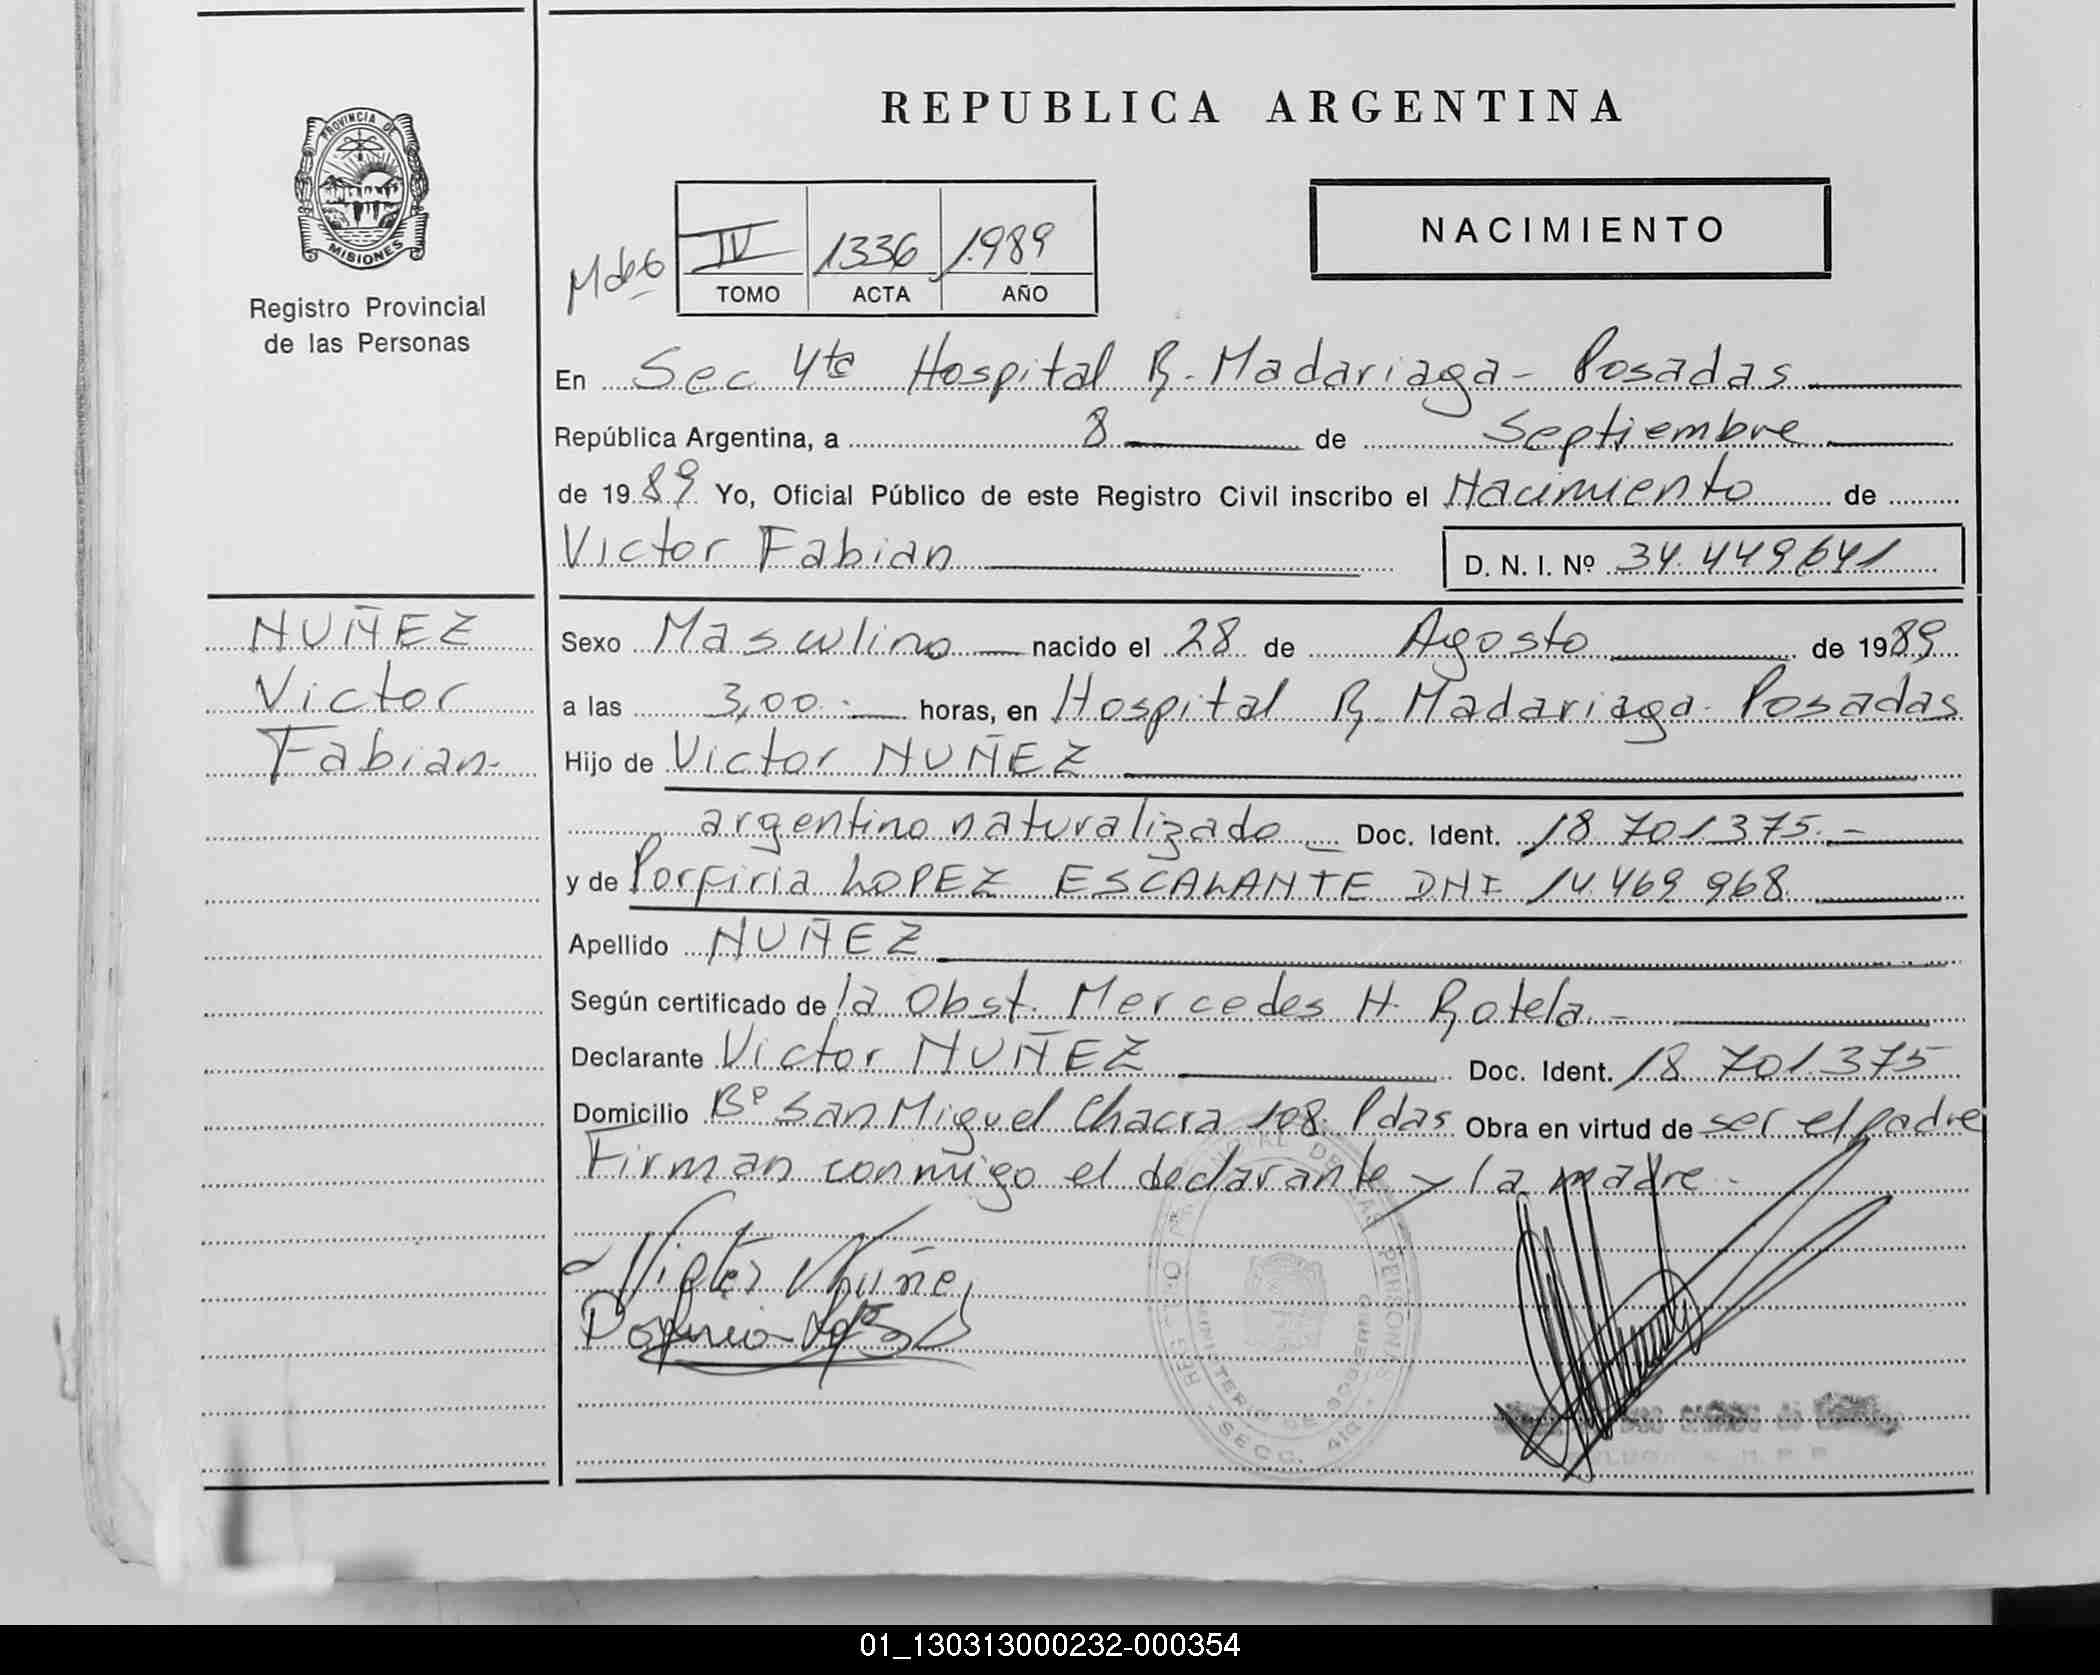 PROVINCIA DE
MISIONES
Registro Provincial
de las Personas
NUÑEZ
Victor
Fabian-
REPUBLICA ARGENTINA
NACIMIENTO
IV 1336 1.989
TOMO ACTA AÑO
En Sec 4ta Hospital R. Madariaga - Posadas
República Argentina, a 8 de Septiembre
de 1989 Yo, Oficial Público de este Registro Civil inscribo el Nacimiento de
Victor Fabian D. N. I. Nº 34.449641
Sexo Masculino nacido el 28 de Agosto de 1989
a las 3,00.- horas, en Hospital R. Madariaga. Posadas
Hijo de Victor NUÑEZ
argentino naturalizado Doc. Ident. 18.701.375.-
y de Porfiria LOPEZ ESCALANTE DNI 14.469.968.
Apellido NUÑEZ
Según certificado de la Obst. Mercedes H. Rotela.-
Declarante Victor NUÑEZ Doc. Ident. 18.701.375
Domicilio Bº San Miguel Chacra 108. Pdas Obra en virtud de ser el padre
Firman conmigo el declarante y la madre.-
Victor Nuñez
MINISTERIO DE GOBIERNO
SECC. 4ta
01_130313000232-000354